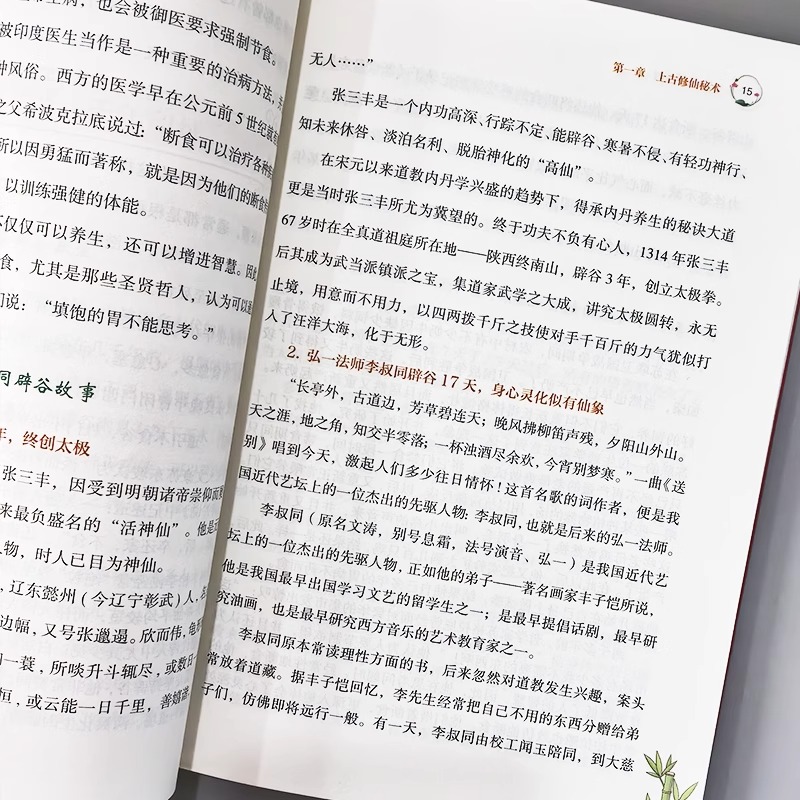 生病，也会被御医要求强制节食。
被印度医生当作是一种重要的治病方法，
种风俗。西方的医学早在公元前5世纪就
之父希波克拉底说过：“断食可以治疗各种
所以因勇猛而著称，就是因为他们的断食
以训练强健的体能。
不仅仅可以养生，还可以增进智慧。因此
食，尤其是那些圣贤哲人，认为可以
们说：“填饱的胃不能思考。”
同辟谷故事
年，终创太极
张三丰，因受到明朝诸帝崇仰而
来最负盛名的“活神仙”。他是
人物，时人已目为神仙。
，辽东懿州（今辽宁彰武）人，
边幅，又号张邋遢。欣而伟，龟
一蓑，所啖升斗辄尽，或数日
恒，或云能一日千里，善嬉谐
第一章 上古修仙秘术 15
无人……”
张三丰是一个内功高深、行踪不定、能辟谷、寒暑不侵、有轻功神行、
知未来休咎、淡泊名利、脱胎神化的“高仙”。
在宋元以来道教内丹学兴盛的趋势下，得承内丹养生的秘诀大道
更是当时张三丰所尤为冀望的。终于功夫不负有心人，1314年张三丰
67岁时在全真道祖庭所在地——陕西终南山，辟谷3年，创立太极拳。
后其成为武当派镇派之宝，集道家武学之大成，讲究太极圆转，永无
止境，用意而不用力，以四两拨千斤之技使对手千百斤的力气犹似打
人了汪洋大海，化于无形。
2. 弘一法师李叔同辟谷17天，身心灵化似有仙象
“长亭外，古道边，芳草碧连天；晚风拂柳笛声残，夕阳山外山。
天之涯，地之角，知交半零落；一杯浊酒尽余欢，今宵别梦寒。”一曲《送
别》唱到今天，激起人们多少往日情怀！这首名歌的词作者，便是我
国近代艺坛上的一位杰出的先驱人物：李叔同，也就是后来的弘一法师。
李叔同（原名文涛，别号息霜，法号演音、弘一）是我国近代艺
坛上的一位杰出的先驱人物，正如他的弟子——著名画家丰子恺所说，
他是我国最早出国学习文艺的留学生之一；是最早提倡话剧，最早研
究油画，也是最早研究西方音乐的艺术教育家之一。
李叔同原本常读理性方面的书，后来忽然对道教发生兴趣，案头
常放着道藏。据丰子恺回忆，李先生经常把自己不用的东西分赠给弟
子们，仿佛即将远行一般。有一天，李叔同由校工闻玉陪同，到大慈